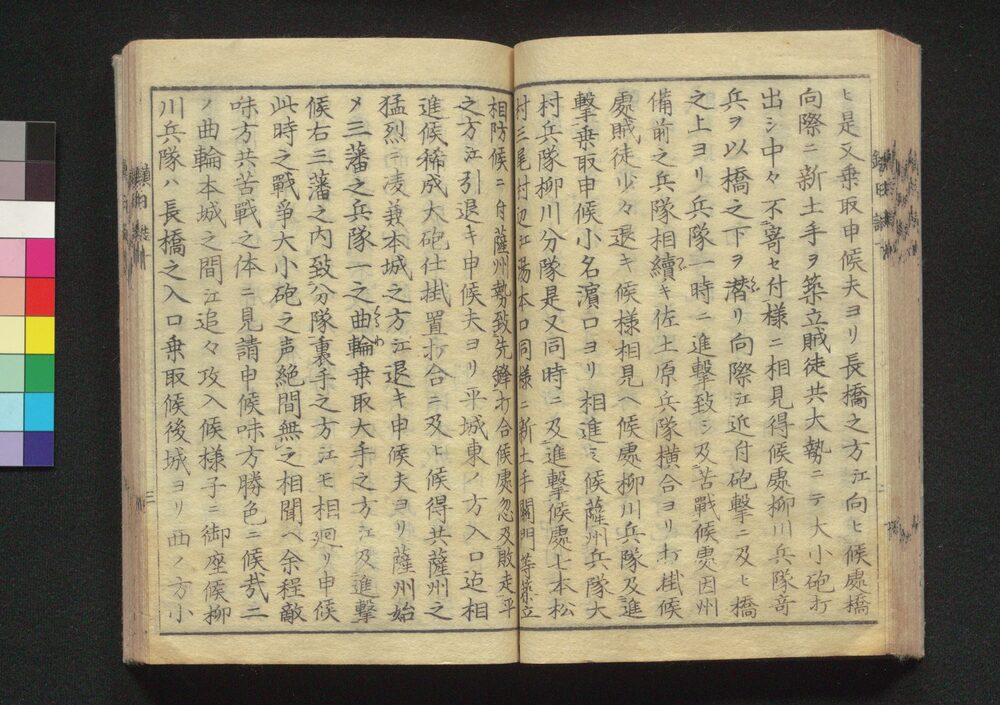 ヒ是又乗取申候夫ヨリ長橋之方江向ヒ候處橋
向際ニ新土手ヲ築立賊徒共大勢ニテ大小砲打
出シ中々不寄セ付様ニ相見得候處柳川兵隊竒
兵ヲ以橋之下ヲ潜リ向際江近付砲撃ニ及ヒ橋
之上ヨリ兵隊一時ニ進撃致シ及苦戰候處因州
備前之兵隊相續キ佐土原兵隊横合ヨリ打掛候
處賊徒少々退キ候様相見ヘ候處柳川兵隊及進
撃乗取申候小名濵口ヨリ相進ミ候薩州兵隊大
村兵隊柳川分隊是又同時ニ及進撃候處上本松
村三尾村辺江湯本口同様ニ新土手關門等築立
相防候ニ付薩州勢致先鋒打合候處忽及敗走平
之方江引退キ申候夫ヨリ平城東ノ方入口迠相
進候稀成大砲仕掛置打合ニ及ヒ候得共薩州之
猛烈ニ凌兼本城之方江退キ申候夫ヨリ薩州始
メ三藩之兵隊一之曲輪乗取大手之方江及進撃
候右三藩之内致分隊裏手之方江モ相廻リ申候
此時之戰爭大小砲之声絶間無之相聞ヘ余程敵
味方共苦戰之体ニ見請申候味方勝色ニ候哉二
ノ曲輪本城之間江追々攻入候様子ニ御座候柳
川兵隊ハ長橋之入口乗取候後城ヨリ西ノ方小